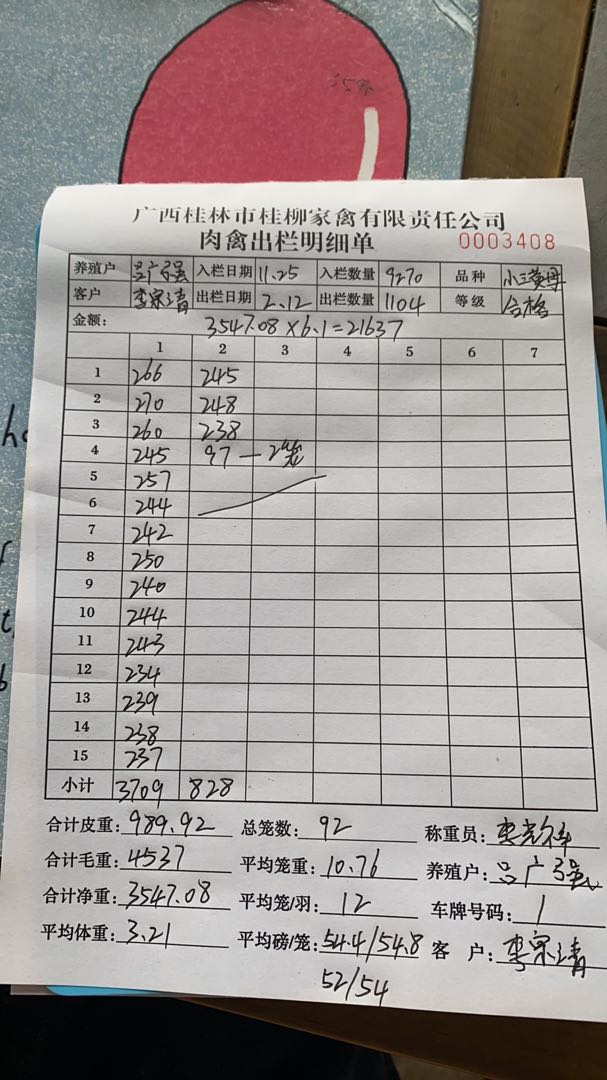 广西桂林市桂柳家禽有限责任公司
肉禽出栏明细单 0003408
养殖户 吕广强 入栏日期 11.25 入栏数量 9270 品种 小三黄母
客户 李宗清 出栏日期 2.12 出栏数量 1104 等级 合格
金额: 3547.08×6.1=21637
1 2 3 4 5 6 7
1 266 245
2 270 248
3 260 238
4 245 97—2笼
5 257
6 244
7 242
8 250
9 240
10 244
11 243
12 234
13 239
14 238
15 237
小计 3709 828
合计皮重: 989.92 总笼数: 92 称重员:
合计毛重: 4537 平均笼重: 10.76 养殖户: 吕广强
合计净重: 3547.08 平均笼/羽: 12 车牌号码: 1
平均体重: 3.21 平均磅/笼: 54.4/54.8 客户: 李宗清
52/54